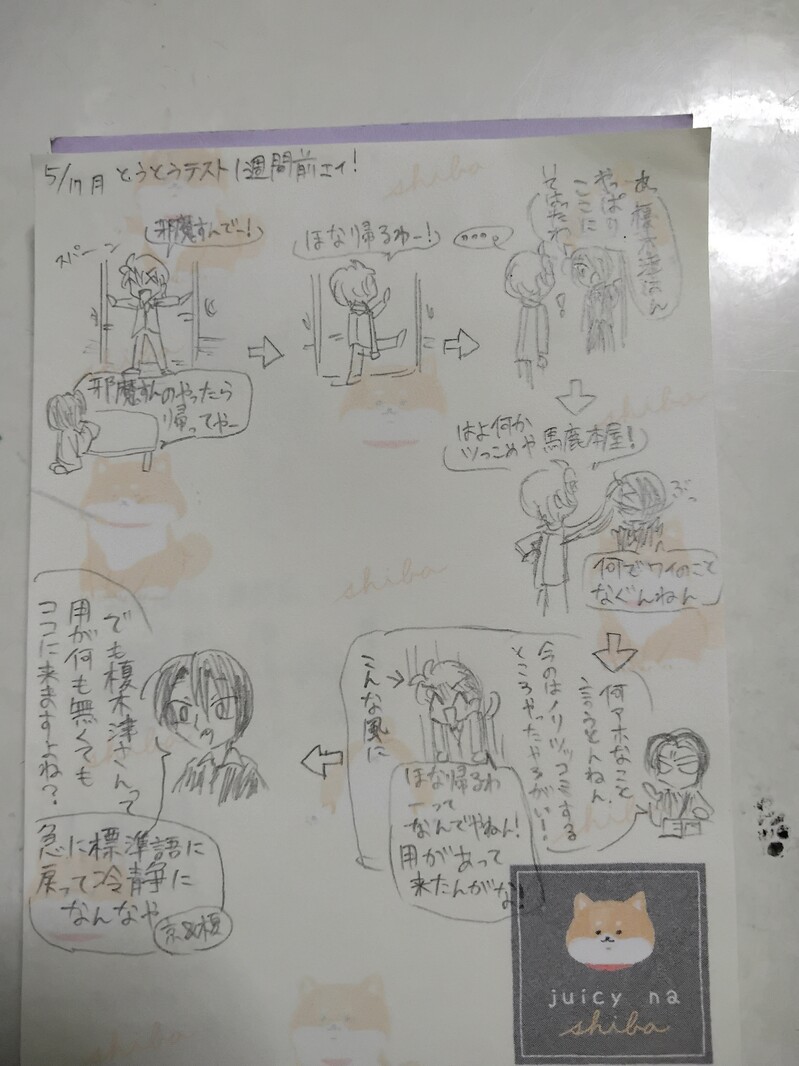 5/17月 とうとうテスト1週間前エィ!
スパーン
邪魔すんでー!
邪魔すんのやったら
帰ってやー
ほなり帰るわー!
。。。
あっ榎木津はん
やっぱり
ここに
いてはったわ
!
はよ何か
ツっこめや馬鹿本屋!
ぶっ
何でワイのこと
なぐんねん
何アホなこと
言うとんねん、
今のはノリツッコミする
ところやったやろがい!
こんな風に
ほな帰るわ
ーって
なんでやねん!
用があって
来たんがな!
でも榎木津さんって
用が何も無くても
ココに来ますよね?
急に標準語に
戻って冷静に
なんなや
京&榎
shiba
shiba
shiba
juicy na
shiba